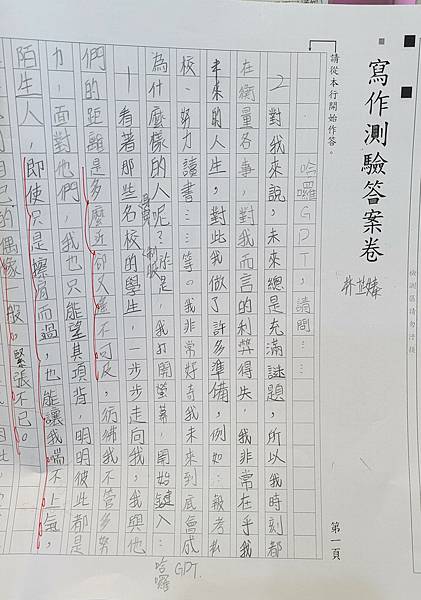 寫作測驗答案卷
請從本行開始作答。
第一頁
哈囉GPT,請問……
對我來說,未來總是充滿謎題,所以我時刻都
在衡量各事,對我而言的利弊得失,我非常在乎我
未來的人生,對此我做了許多準備,例如:報考私
校、努力讀書……等。我非常好奇我未來到底會成
為什麼樣的人呢?於是,我打開螢幕,開始鍵入…
哈囉GPT.
看著那些名校的學生,一步步走向我,我與他
制服
們的距離是多麼近卻又遙不可及,彷彿我不管多努
力,面對他們,我也只能望其項背,明明彼此都是
陌生人,即使只是擦肩而過,也能讓我喘不上氣,
偶像一般。緊張不已。